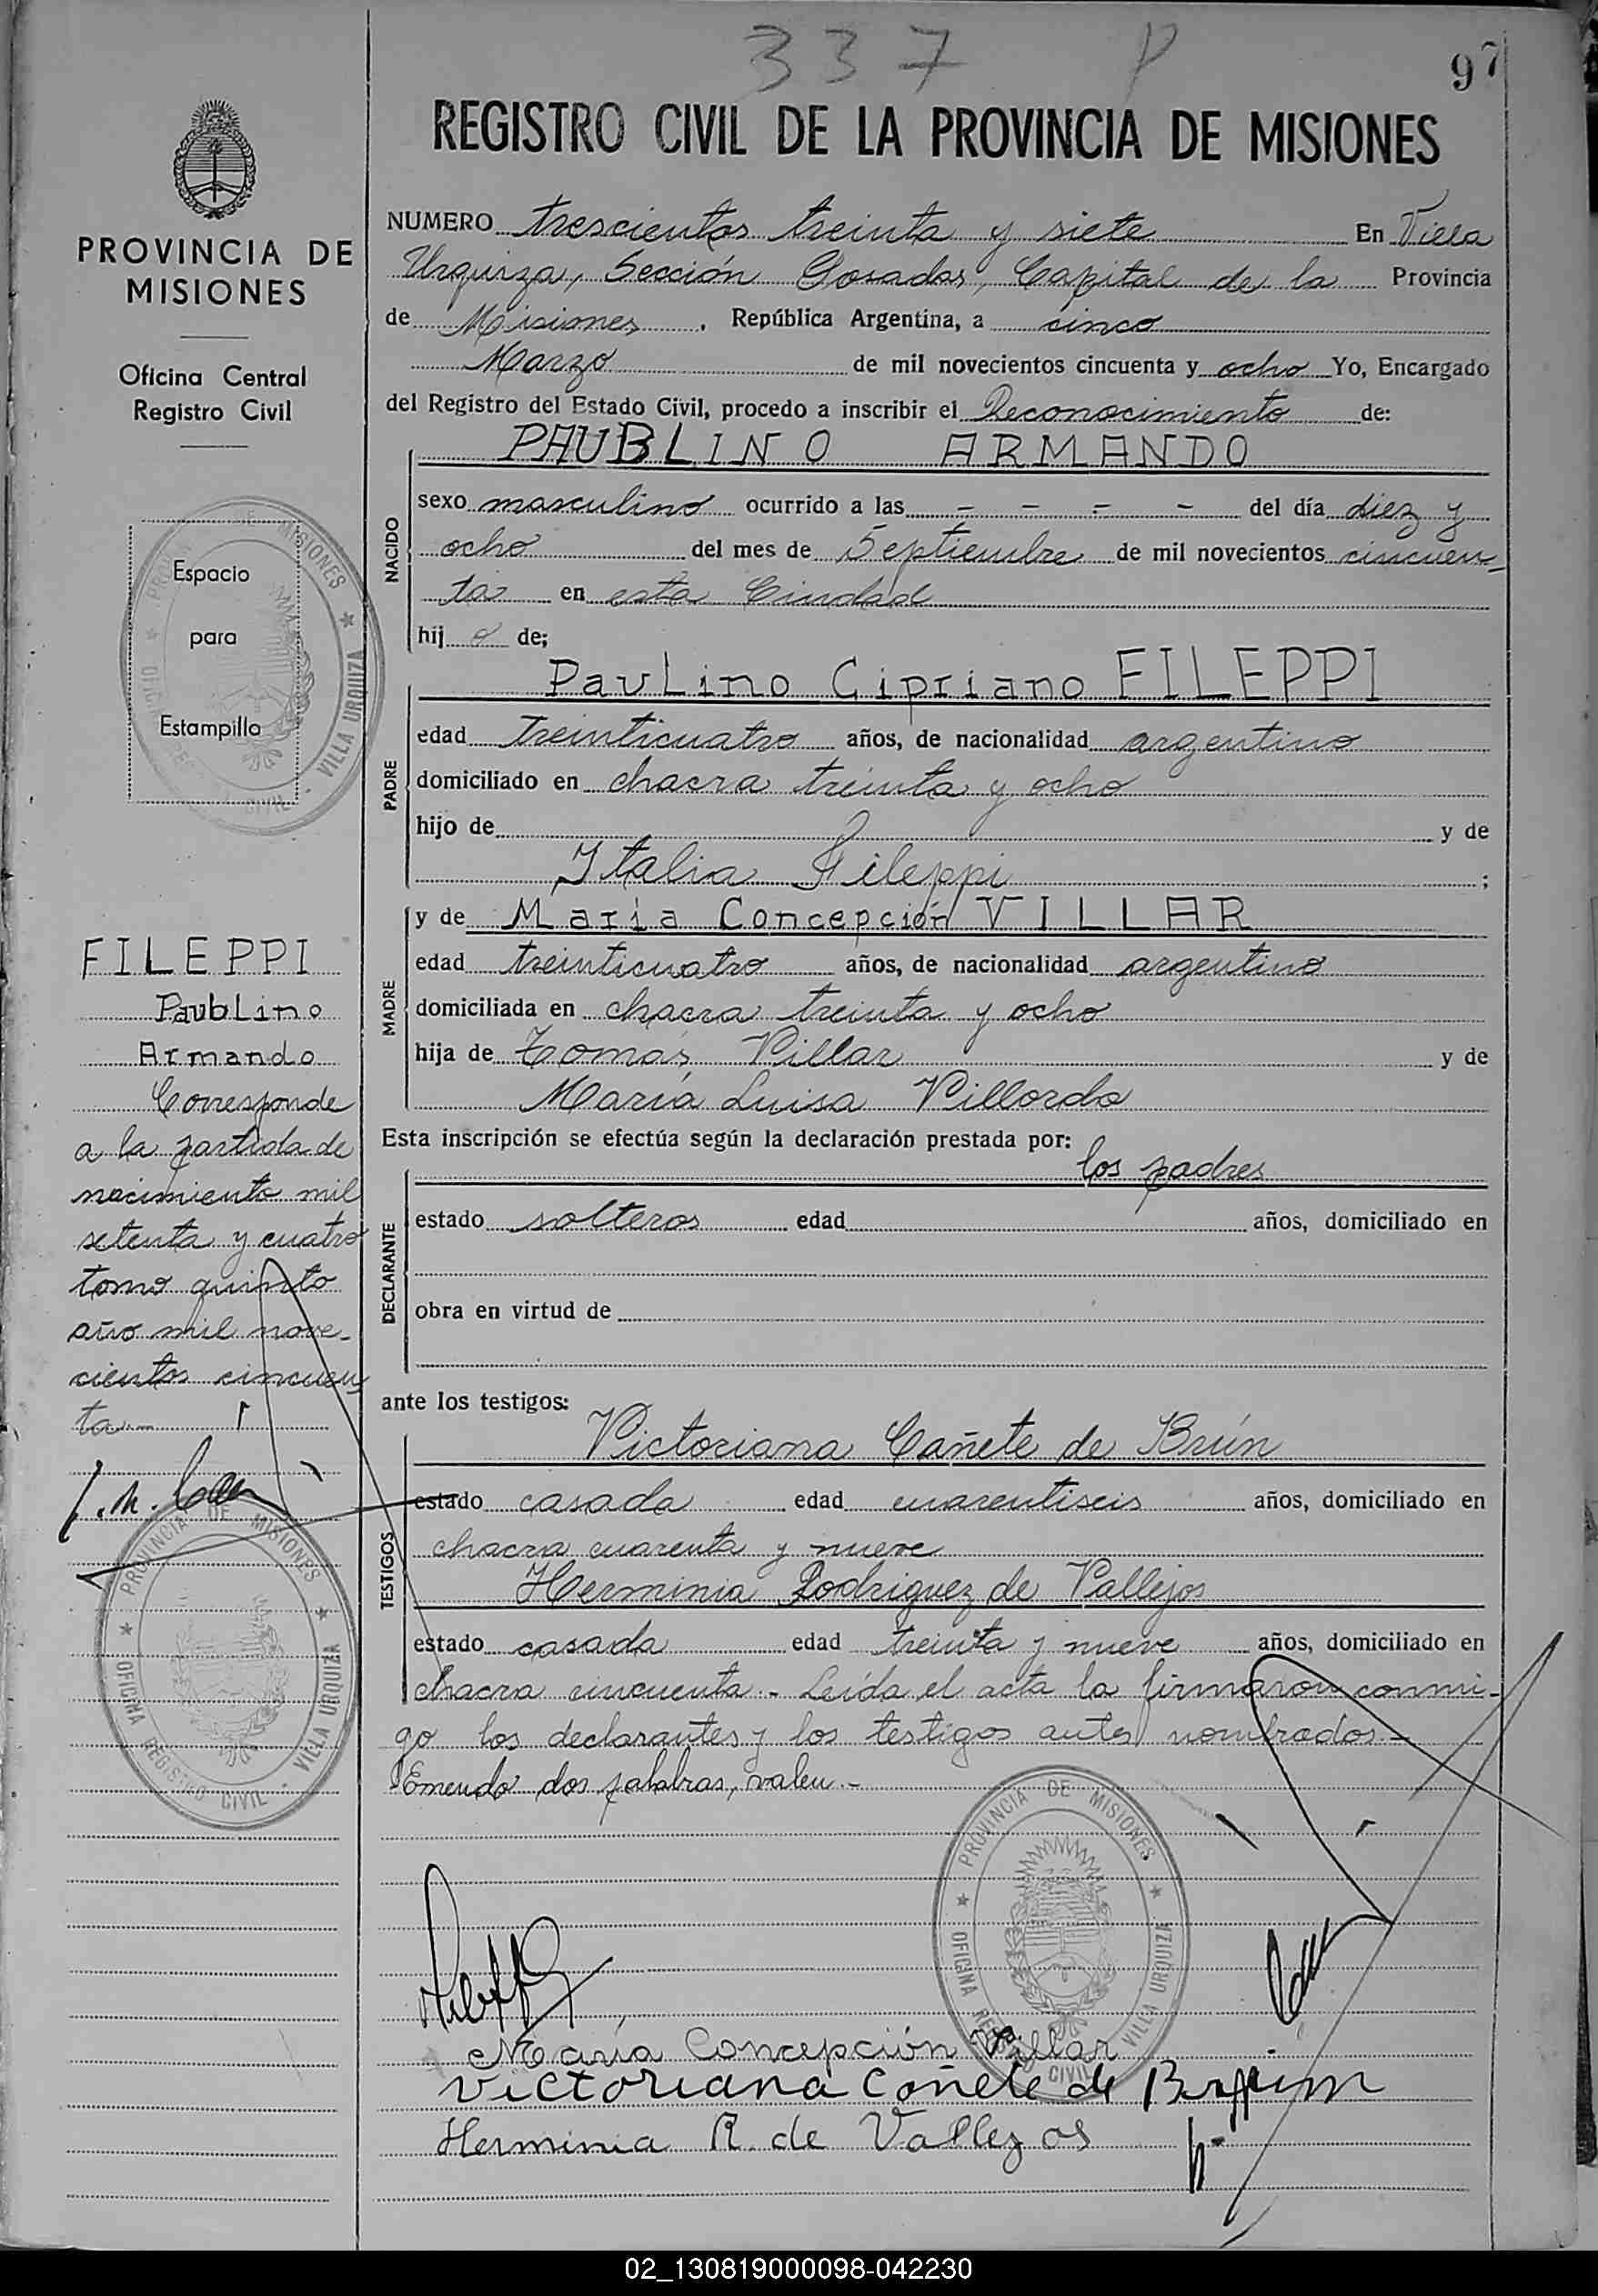 337 P
97
REGISTRO CIVIL DE LA PROVINCIA DE MISIONES
PROVINCIA DE
MISIONES
Oficina Central
Registro Civil
Espacio
para
Estampilla
PROVINCIA DE MISIONES
OFICINA REGISTRO CIVIL - VILLA URQUIZA
FILEPPI
PaubLino
Armando
Corresponde
a la partida de
nacimiento mil
setenta y cuatro
tomo quinto
año mil nove-
cientos cincuen
ta
PROVINCIA DE MISIONES
OFICINA REGISTRO CIVIL - VILLA URQUIZA
NUMERO trescientos treinta y siete En Villa
Urquiza, Sección Posadas, Capital de la Provincia
de Misiones, República Argentina, a cinco
Marzo de mil novecientos cincuenta y ocho Yo, Encargado
del Registro del Estado Civil, procedo a inscribir el Reconocimiento de:
NACIDO
PAUBLINO ARMANDO
sexo masculino ocurrido a las - - - - del día diez y
ocho del mes de Septiembre de mil novecientos cincuen-
ta en esta Ciudad
hij o de;
PADRE
PauLino Cipriano FILEPPI
edad treinticuatro años, de nacionalidad argentino
domiciliado en chacra treinta y ocho
hijo de y de
Italia Fileppi ;
MADRE
y de María Concepción VILLAR
edad treinticuatro años, de nacionalidad argentina
domiciliada en chacra treinta y ocho
hija de Tomás Villar y de
María Luisa Villordo
Esta inscripción se efectúa según la declaración prestada por:
los padres
DECLARANTE
estado solteros edad años, domiciliado en
obra en virtud de
ante los testigos:
TESTIGOS
Victoriana Cañete de Brún
estado casada edad cuarentiseis años, domiciliado en
chacra cuarenta y nueve
Herminia Rodriguez de Vallejos
estado casada edad treinta y nueve años, domiciliado en
chacra cincuenta.- Leída el acta la firmaron conmi-
go los declarantes y los testigos antes nombrados.-
Emendo dos palabras, valen.-
PROVINCIA DE MISIONES
OFICINA REGISTRO CIVIL - VILLA URQUIZA
María Concepción Villar
Victoriana Cañete de
Herminia R. de Vallejos
02_130819000098-042230